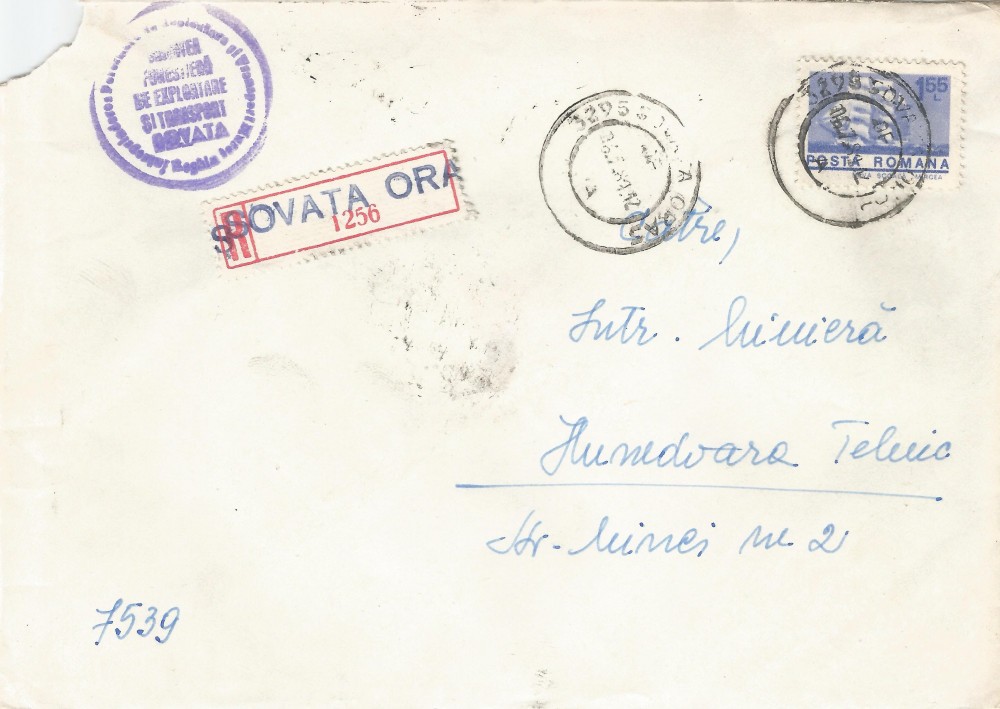 FORESTIERĂ
DE EXPLOATARE
ȘI TRANSPORT
SOVATA
R
SOVATA ORA
1256
SOVATA ORAS
3295
1.55 L
POSTA ROMANA
Către,
Intr. Minieră
Hunedoara Teliuc
Str. Minei nr 2
7539